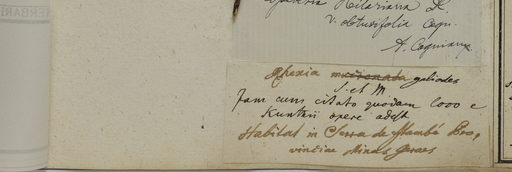 Hilariana
v. obtusifolia Cogn.
A. Cogniaux
Rhexia mucronata galioides
S. et M.
Jam cum citato quodam loco e
Kunthii opere adest
Habitat in Serra de Itambé Pro,
vinciae Minas Geraes
HERBARI